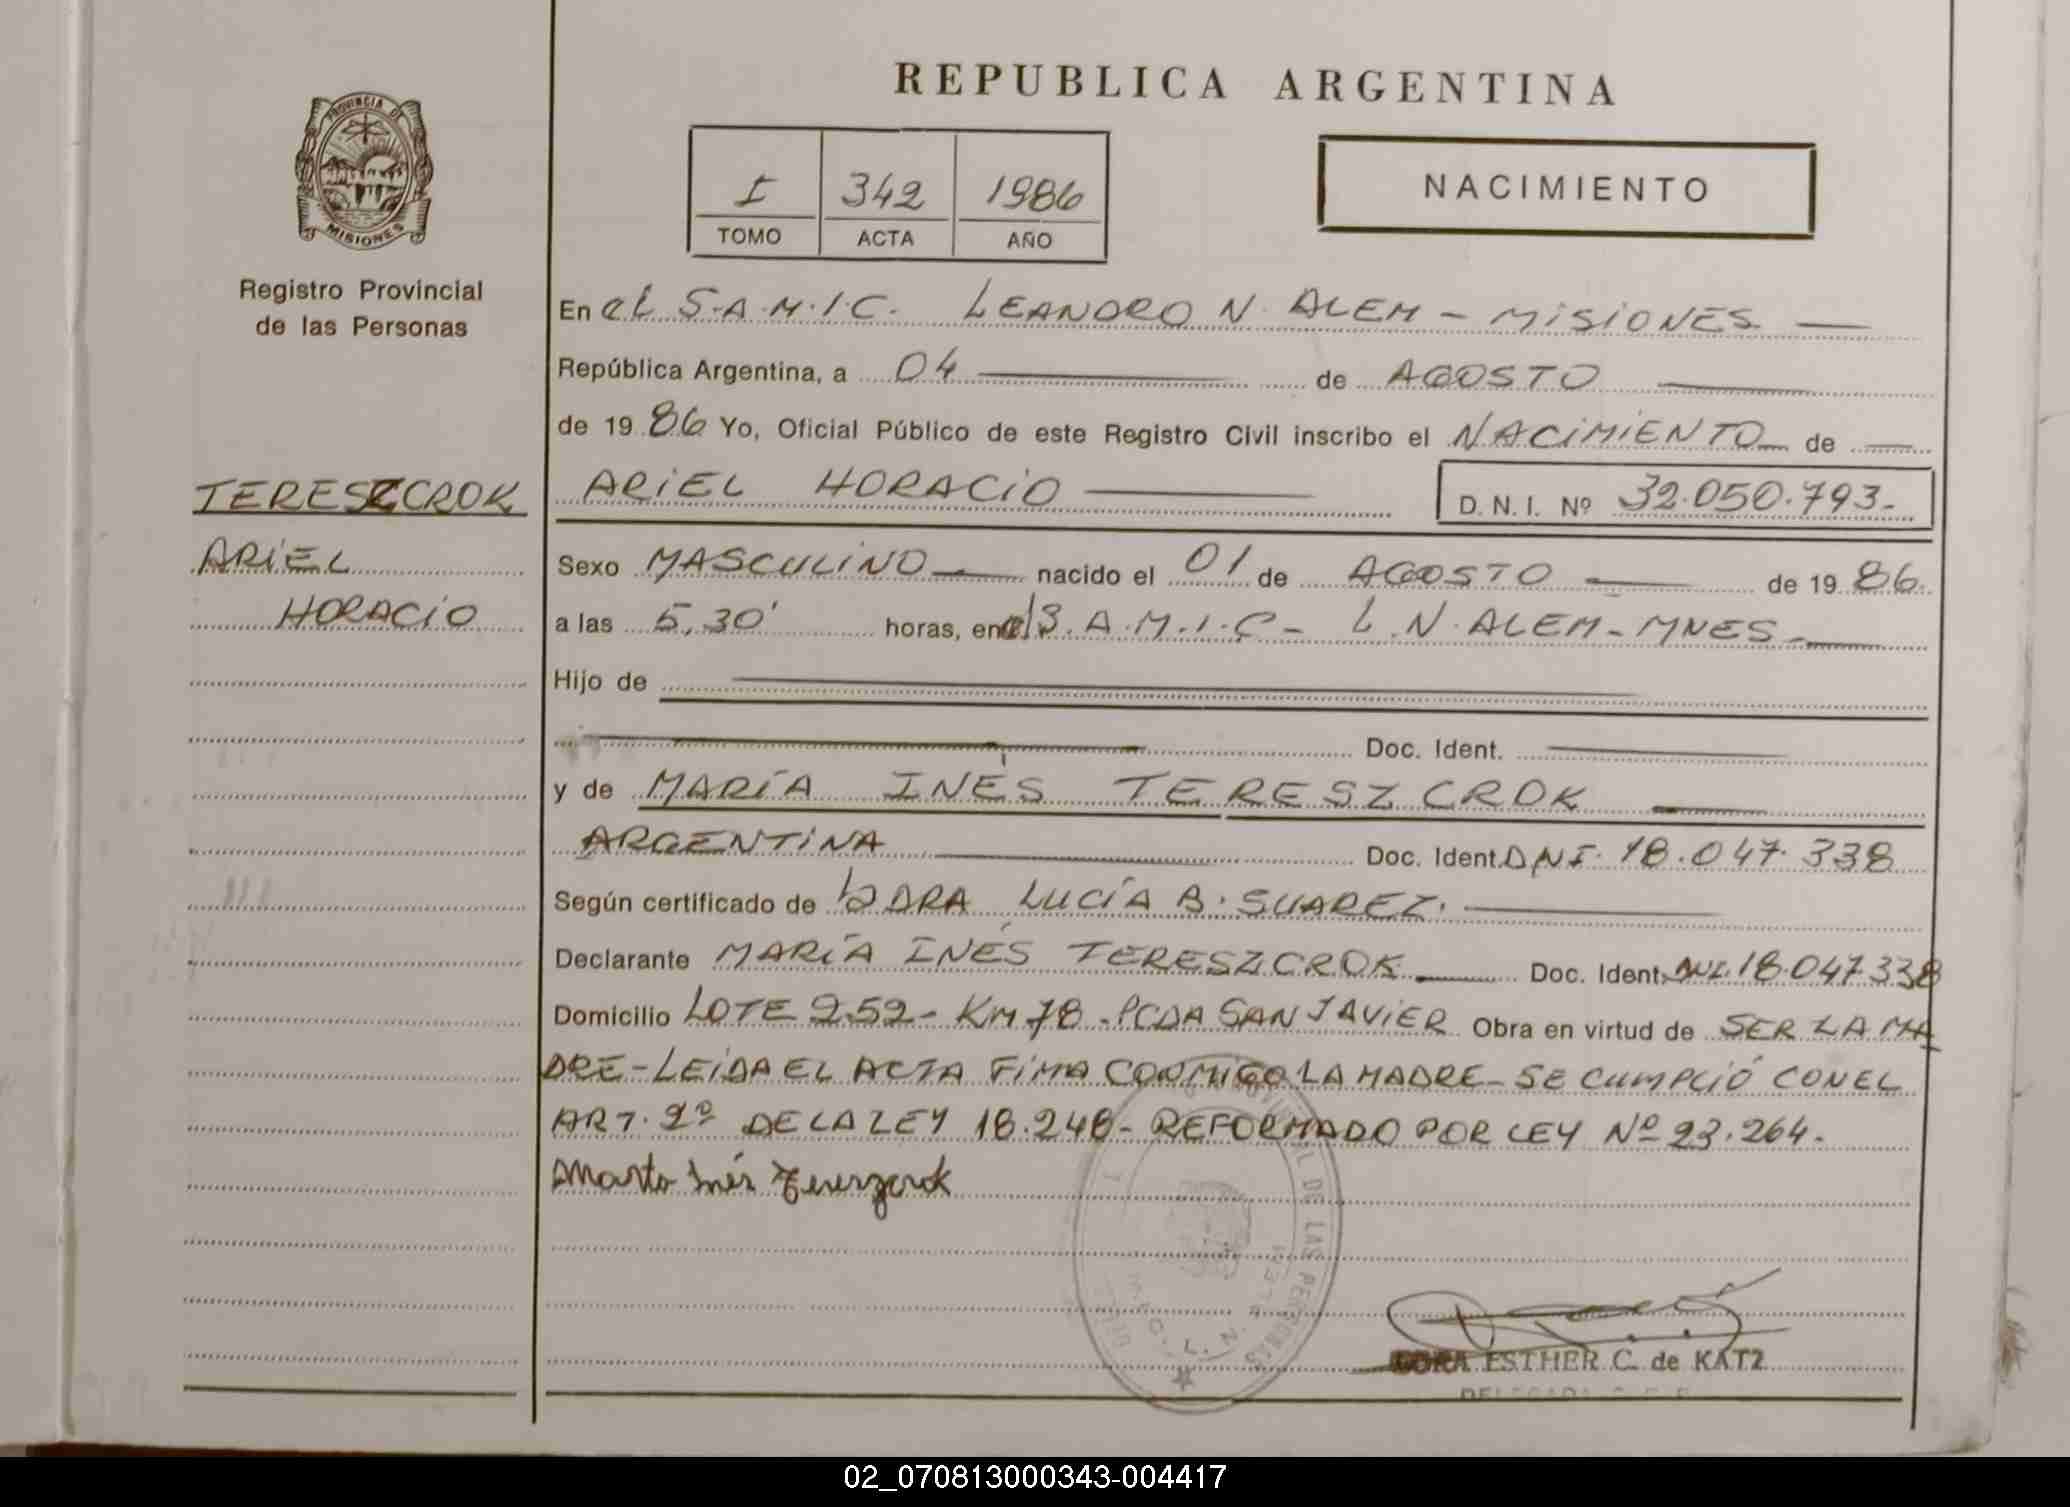 REPUBLICA ARGENTINA
PROVINCIA DE
MISIONES
Registro Provincial
de las Personas
I 342 1986
TOMO ACTA AÑO
NACIMIENTO
En el S.A.M.I.C. LEANDRO N. ALEM - MISIONES
República Argentina, a 04 de AGOSTO
de 1986 Yo, Oficial Público de este Registro Civil inscribo el NACIMIENTO de
TERESZCROK
ARIEL
HORACIO
ARIEL HORACIO D. N. I. Nº 32.050.793.-
Sexo MASCULINO nacido el 01 de AGOSTO de 1986.
a las 5,30' horas, en el S.A.M.I.C - L.N. ALEM - MNES -
Hijo de
Doc. Ident.
y de MARÍA INÉS TERESZCROK
ARGENTINA Doc. Ident. DNI. 18.047.338
Según certificado de la DRA LUCÍA B. SUAREZ.
Declarante MARÍA INÉS TERESZCROK Doc. Ident. DNI. 18.047.338
Domicilio LOTE 252 - Km 78 - PCDA SAN JAVIER Obra en virtud de SER LA MA
DRE - LEIDA EL ACTA FIMA CONMIGO LA MADRE - SE CUMPLIÓ CON EL
ART. 2º DE LA LEY 18.248 - REFORMADO POR LEY Nº 23.264.
Inés Tereszcrok
DE LAS PERSONAS
L. N. ALEM
ESTHER C. de KATZ
02_070813000343-004417